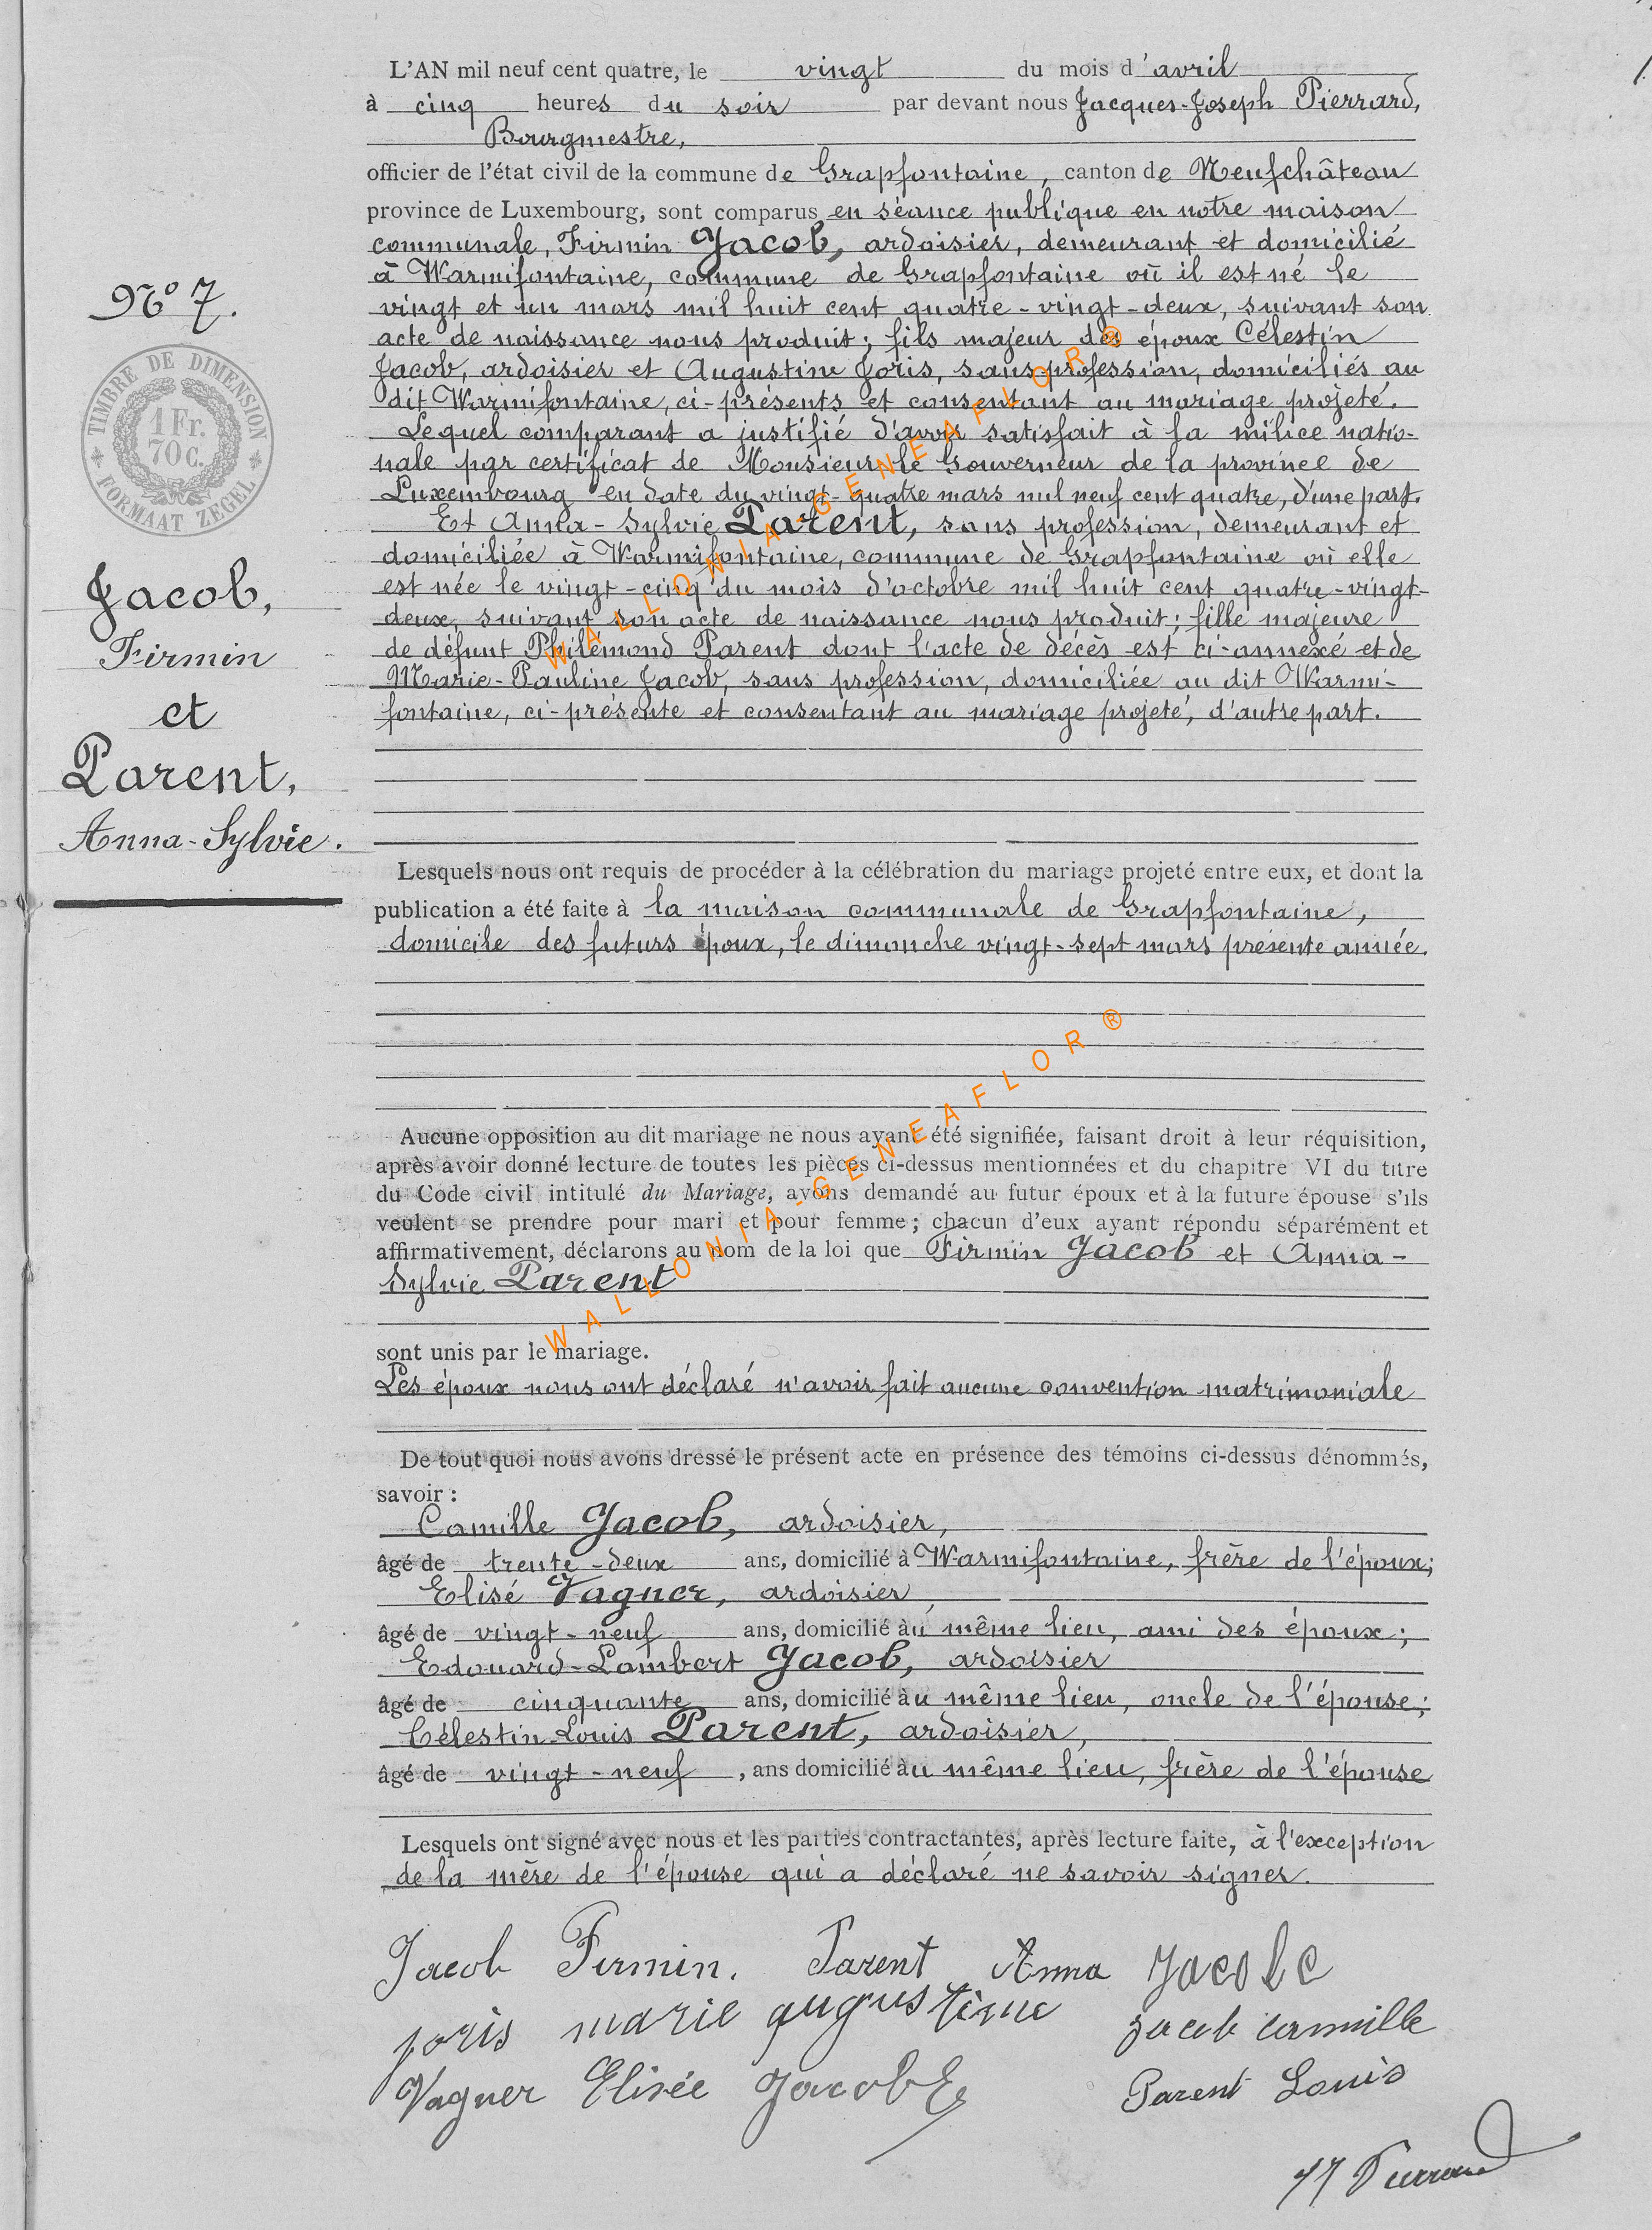 L'AN mil neuf cent quatre, le vingt du mois d'avril
à cinq heures du soir par devant nous Jacques-Joseph Pierrard,
Bourgmestre,
officier de l'état civil de la commune de Grapfontaine, canton de Neufchâteau
province de Luxembourg, sont comparus en séance publique en notre maison
communale, Firmin Jacob, ardoisier, demeurant et domicilié
à Warmifontaine, commune de Grapfontaine où il est né le
vingt et un mars mil huit cent quatre-vingt-deux, suivant son
acte de naissance nous produit; fils majeur des époux Célestin
Jacob, ardoisier et Augustine Joris, sans profession, domiciliés au
dit Warmifontaine, ci-présents et consentant au mariage projeté.
Lequel comparant a justifié d'avoir satisfait à la milice natio-
nale par certificat de Monsieur le Gouverneur de la province de
Luxembourg en date du vingt-quatre mars mil neuf cent quatre, d'une part.
Et Anna-Sylvie Parent, sans profession, demeurant et
domiciliée à Warmifontaine, commune de Grapfontaine où elle
est née le vingt-cinq du mois d'octobre mil huit cent quatre-vingt-
deux, suivant son acte de naissance nous produit; fille majeure
de défunt Philémond Parent dont l'acte de décès est ci-annexé et de
Marie-Pauline Jacob, sans profession, domiciliée au dit Warmi-
fontaine, ci-présente et consentant au mariage projeté, d'autre part.
N° 7.
TIMBRE DE DIMENSION
1 Fr.
70 c.
FORMAAT ZEGEL
Jacob,
Firmin
et
Parent,
Anna-Sylvie.
Lesquels nous ont requis de procéder à la célébration du mariage projeté entre eux, et dont la
publication a été faite à la maison communale de Grapfontaine,
domicile des futurs époux, le dimanche vingt-sept mars présente année.
Aucune opposition au dit mariage ne nous ayant été signifiée, faisant droit à leur réquisition,
après avoir donné lecture de toutes les pièces ci-dessus mentionnées et du chapitre VI du titre
du Code civil intitulé du Mariage, avons demandé au futur époux et à la future épouse s'ils
veulent se prendre pour mari et pour femme; chacun d'eux ayant répondu séparément et
affirmativement, déclarons au nom de la loi que Firmin Jacob et Anna-
Sylvie Parent
sont unis par le mariage.
Les époux nous ont déclaré n'avoir fait aucune convention matrimoniale
De tout quoi nous avons dressé le présent acte en présence des témoins ci-dessus dénommés,
savoir :
Camille Jacob, ardoisier,
âgé de trente-deux ans, domicilié à Warmifontaine, frère de l'époux;
Elisé Vagner, ardoisier,
âgé de vingt-neuf ans, domicilié àu même lieu, ami des époux;
Edouard-Lambert Jacob, ardoisier
âgé de cinquante ans, domicilié àu même lieu, oncle de l'épouse;
Célestin-Louis Parent, ardoisier,
âgé de vingt-neuf, ans domicilié àu même lieu, frère de l'épouse
Lesquels ont signé avec nous et les parties contractantes, après lecture faite, à l'exception
de la mère de l'épouse qui a déclaré ne savoir signer.
Jacob Firmin. Parent Anna Jacob C
joris marie augustine jacob camille
Vagner Elisée Jacob E
Parent Louis
JJ Pierrard
WALLONIA-GENEAFLOR®
WALLONIA-GENEAFLOR®